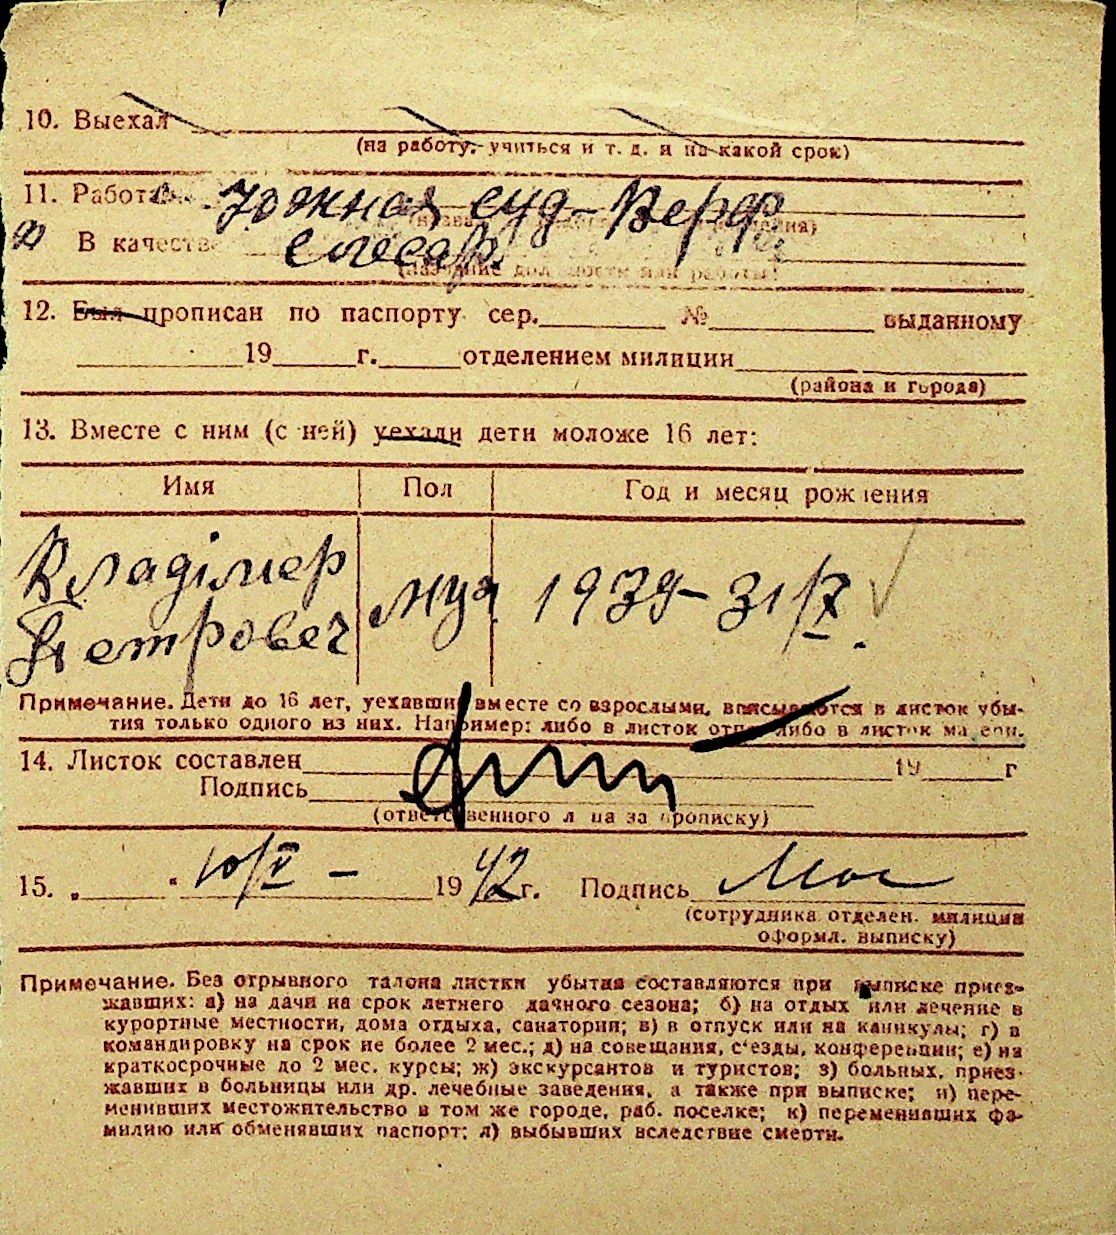 10. Выехал
(на работу, учиться и т. д. и на какой срок)
11. Работа Южная суд-Верфь
В качестве слесар.
12. Был прописан по паспорту сер. № выданному
19 г. отделением милиции
(района и города)
13. Вместе с ним (с ней) уехали дети моложе 16 лет:
Имя Пол Год и месяц рождения
Владімер муж 1939-31/X.
Петровеч
Примечание. Дети до 16 лет, уехавшие вместе со взрослыми, вписываются в листок убы-
тия только одного из них. Например: либо в листок отца либо в листок матери.
14. Листок составлен 19 г
Подпись
(ответственного лица за прописку)
15. „ " 10/V - 1942 г. Подпись
(сотрудника отделен. милиции
оформл. выписку)
Примечание. Без отрывного талона листки убытия составляются при выписке приез-
жавших: а) на дачи на срок летнего дачного сезона; б) на отдых или лечение в
курортные местности, дома отдыха, санатории; в) в отпуск или на каникулы; г) в
командировку на срок не более 2 мес.; д) на совещания, с'езды, конференции; е) на
краткосрочные до 2 мес. курсы; ж) экскурсантов и туристов; з) больных, приез-
жавших в больницы или др. лечебные заведения, а также при выписке; и) пере-
менивших местожительство в том же городе, раб. поселке; к) переменивших фа-
милию или обменявших паспорт; л) выбывших вследствие смерти.